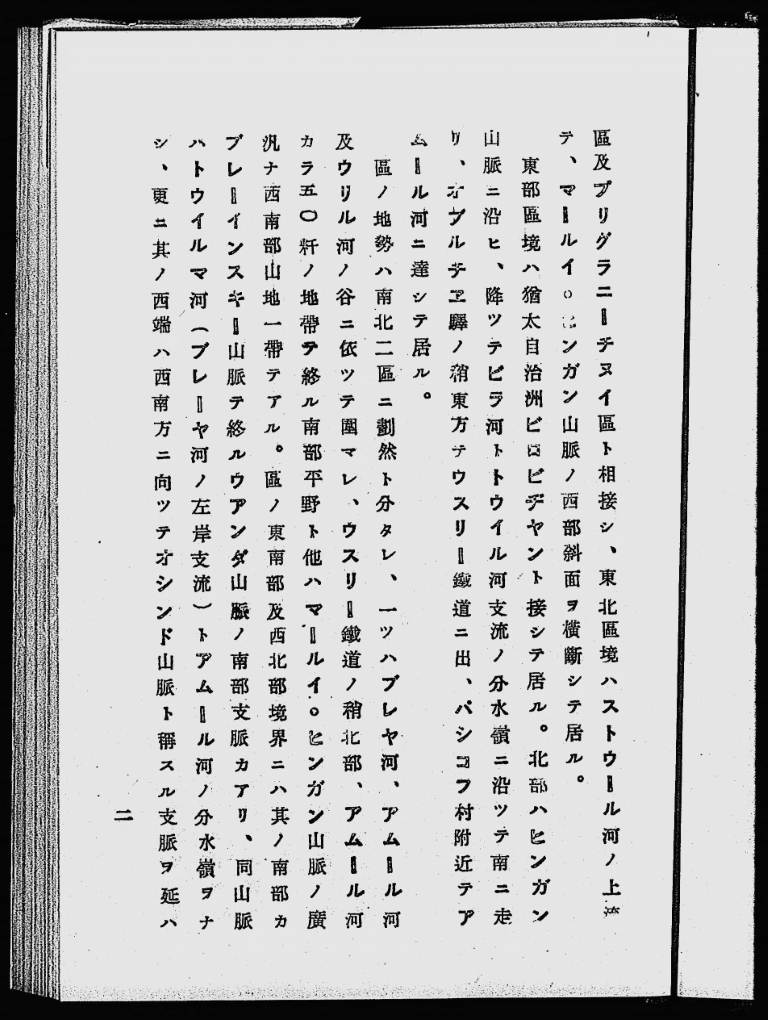 區及プリグラニーチヌイ區ト相接シ、東北區境ハストウール河ノ上流
テ、マールイ。ヒンガン山脈ノ西部斜面ヲ橫斷シテ居ル。
東部區境ハ猶太自治洲ビロビヂヤント接シテ居ル。北部ハヒンガン
山脈ニ沿ヒ、降ツテビラ河トトウイル河支流ノ分水嶺ニ沿ツテ南ニ走
リ、オブルチヱ驛ノ稍東方テウスリー鐵道ニ出、パシコフ村附近テア
ムール河ニ達シテ居ル。
區ノ地勢ハ南北二區ニ劃然ト分タレ、一ツハブレヤ河、アムール河
及ウリル河ノ谷ニ依ツテ圍マレ、ウスリー鐵道ノ稍北部、アムール河
カラ五〇粁ノ地帶テ終ル南部平野ト他ハマールイ。ヒンガン山脈ノ廣
汎ナ西南部山地一帶テアル。區ノ東南部及西北部境界ニハ其ノ南部カ
ブレーインスキー山脈テ終ルウアンダ山脈ノ南部支脈カアリ、同山脈
ハトウイルマ河（ブレーヤ河ノ左岸支流）トアムール河ノ分水嶺ヲナ
シ、更ニ其ノ西端ハ西南方ニ向ツテオシンド山脈ト稱スル支脈ヲ延ハ
二